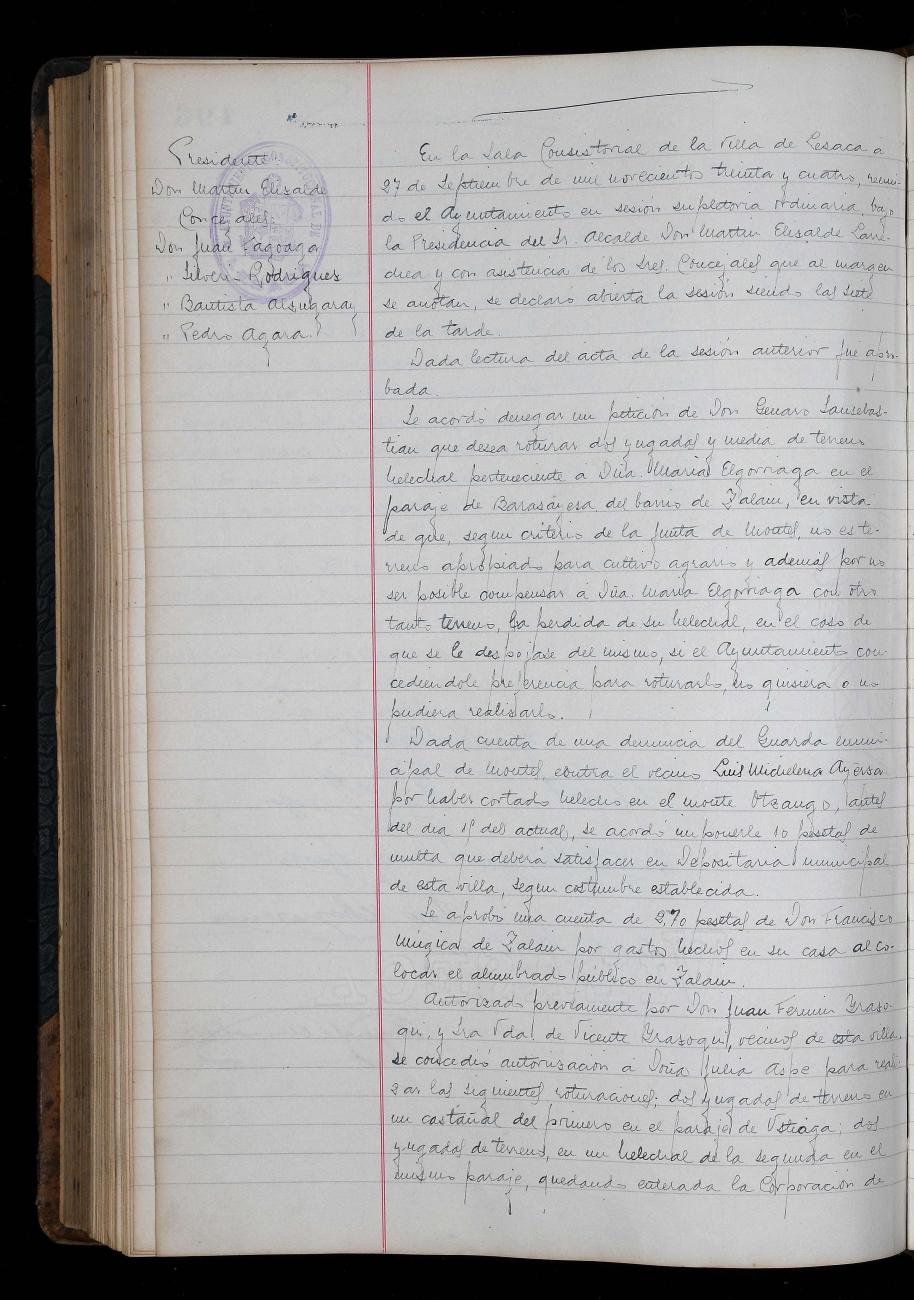 Presidente
Don Martin Elizalde
Concejales
Don Juan Fagoaga
" Silverio Rodrigues
" Bautista Alzugaray
" Pedro Agara
En la Sala Consistorial de la villa de Lesaca a
27 de Septiembre de mil novecientos treinta y cuatro, reuni-
do el Ayuntamiento en sesión supletoria ordinaria, bajo
la Presidencia del Sr. Alcalde Don Martin Elizalde Lan-
dica y con asistencia de los Sres. Concejales que al margen
se anotan, se declaró abierta la sesión siendo las siete
de la tarde.
Dada lectura del acta de la sesión anterior fue apro-
bada.
Se acordó denegar un petición de Don Genaro Sansebas-
tian que desea roturar dos yugadas y media de terreno
helechal perteneciente a Dña. Maria Elgorriaga en el
paraje de del barrio de Zalain, en vista
de que, segun criterio de la Junta de Montes, no es te-
rreno apropiado para cultivo agrario y además por no
ser posible compensar a Dña. Maria Elgorriaga con otro
tanto terreno, la perdida de su helechal, en el caso de
que se le despojase del mismo, si el Ayuntamiento con-
cediendole preferencia para roturarlo, no quisiera o no
pudiera realisarlo.
Dada cuenta de una denuncia del Guarda muni-
cipal de montes, contra el vecino Luis Michelena Ayersa
por haber cortado helecho en el monte Otzango, antes
del dia 15 del actual, se acordó imponerle 10 pesetas de
multa que deberá satisfacer en Depositaria municipal
de esta villa, segun costumbre establecida.
Se aprobó una cuenta de 2,70 pesetas de Don Francisco
Mugica de Zalain por gastos hechos en su casa al co-
locar el alumbrado público en Zalain.
Autorizado previamente por Don Juan Fermin Graso-
qui, y Sra Vda. de Vicente Grasoqui, vecinos de esta villa,
se concedió autorización a Doña Julia Aspe para reali-
zar las siguientes roturaciones; dos yugadas de terreno en
un castañal del primero en el paraje de Ustiaga; dos
yugadas de terreno, en un helechal de la segunda en el
mismo paraje, quedando enterada la Corporación de